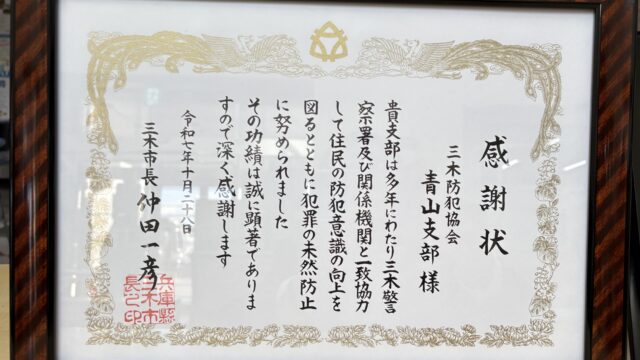 感謝状
三木防犯協会
青山支部 様
貴支部は多年にわたり三木警
察署及び関係機関と一致協力
して住民の防犯意識の向上を
図るとともに犯罪の未然防止
に努められました
その功績は誠に顕著でありま
すので深く感謝します
令和七年十月二十八日
三木市長 仲田一彦
兵庫縣
三木市
長之印